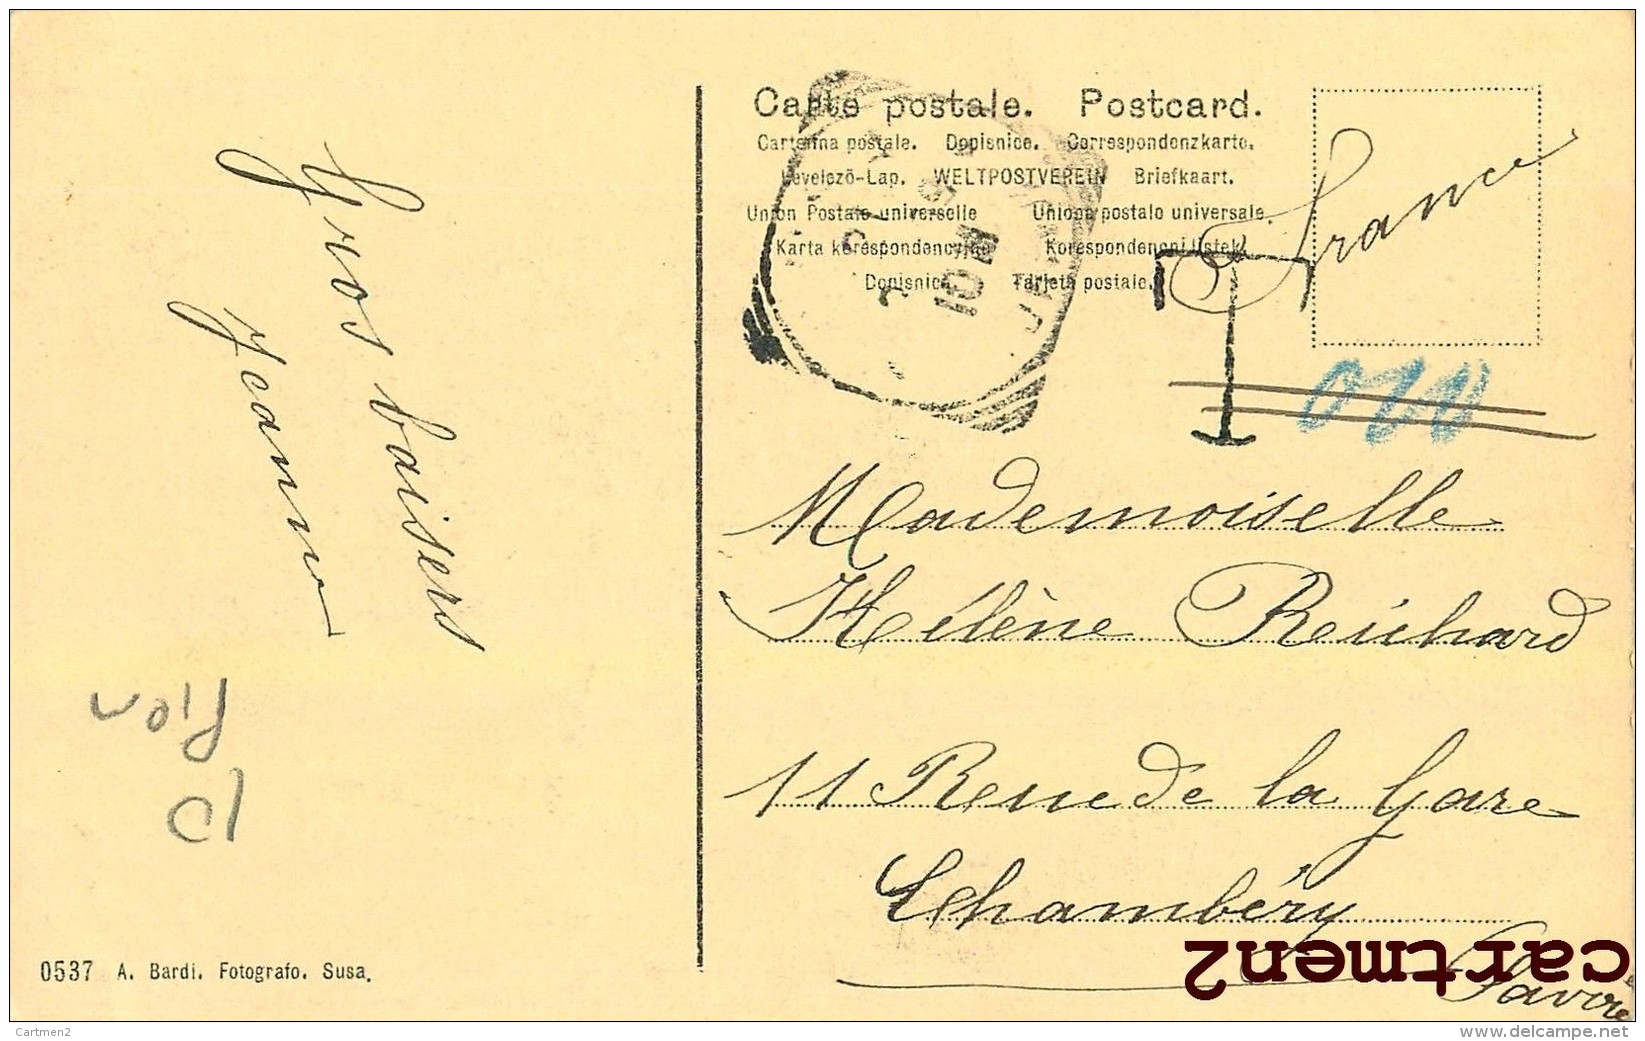 Carte postale. Postcard.
Cartolina postale. Dopisnice. Correspondenzkarte.
Levelezö-Lap. WELTPOSTVEREIN Briefkaart.
Union Postale universelle Unione postale universale.
Karta korespondencyjna Korespondencni listek.
Dopisnica Tarjeta postale.
France
10 M
T
020
Gros baisers
Jeanne
Mademoiselle
Hélène Reichard
11 Rue de la Gare
Chambéry
Savoie
Pion
10
0537 A. Bardi. Fotografo. Susa.
cartmen2
Cartmen2
www.delcampe.net